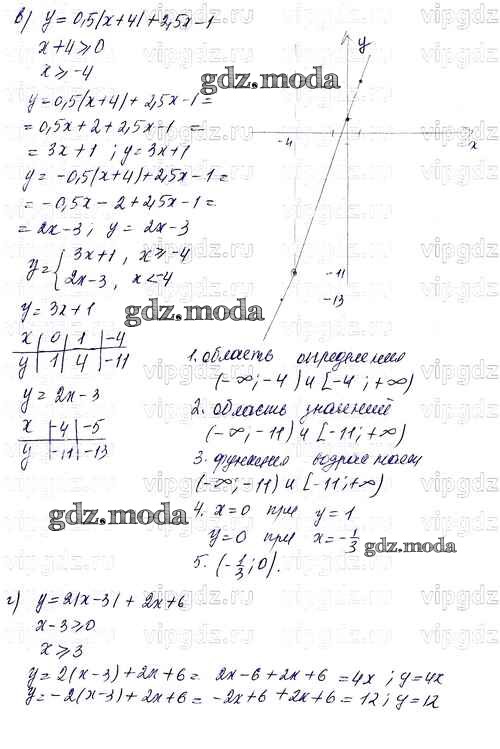 в) y = 0,5|x+4| + 2,5x-1
x+4 ⩾ 0
x ⩾ -4
y = 0,5(x+4) + 2,5x-1 =
= 0,5x+2+2,5x-1 =
= 3x+1 ; y = 3x+1
y = -0,5(x+4)+2,5x-1 =
= -0,5x-2+2,5x-1 =
= 2x-3 ; y = 2x-3
y = { 3x+1 , x ⩾ -4
2x-3 , x < -4
y = 3x+1
x | 0 | 1 | -4
y | 1 | 4 | -11
y = 2x-3
x | -4 | -5
y | -11 | -13
y
x
-4
1
-11
-13
1. область определения
(-∞;-4) и [-4 ; +∞)
2. область значений
(-∞,-11) и [-11;+∞)
3. функция возрастает
(-∞,-11) и [-11;+∞)
4. x = 0 при y = 1
y = 0 при x = -1/3
5. (-1/3; 0).
г) y = 2|x-3| + 2x+6
x-3 ⩾ 0
x ⩾ 3
y = 2(x-3)+2x+6 = 2x-6+2x+6 = 4x ; y = 4x
y = -2(x-3)+2x+6 = -2x+6+2x+6 = 12 ; y = 12
gdz.moda
gdz.moda
gdz.moda
gdz.moda
vipgdz.ru